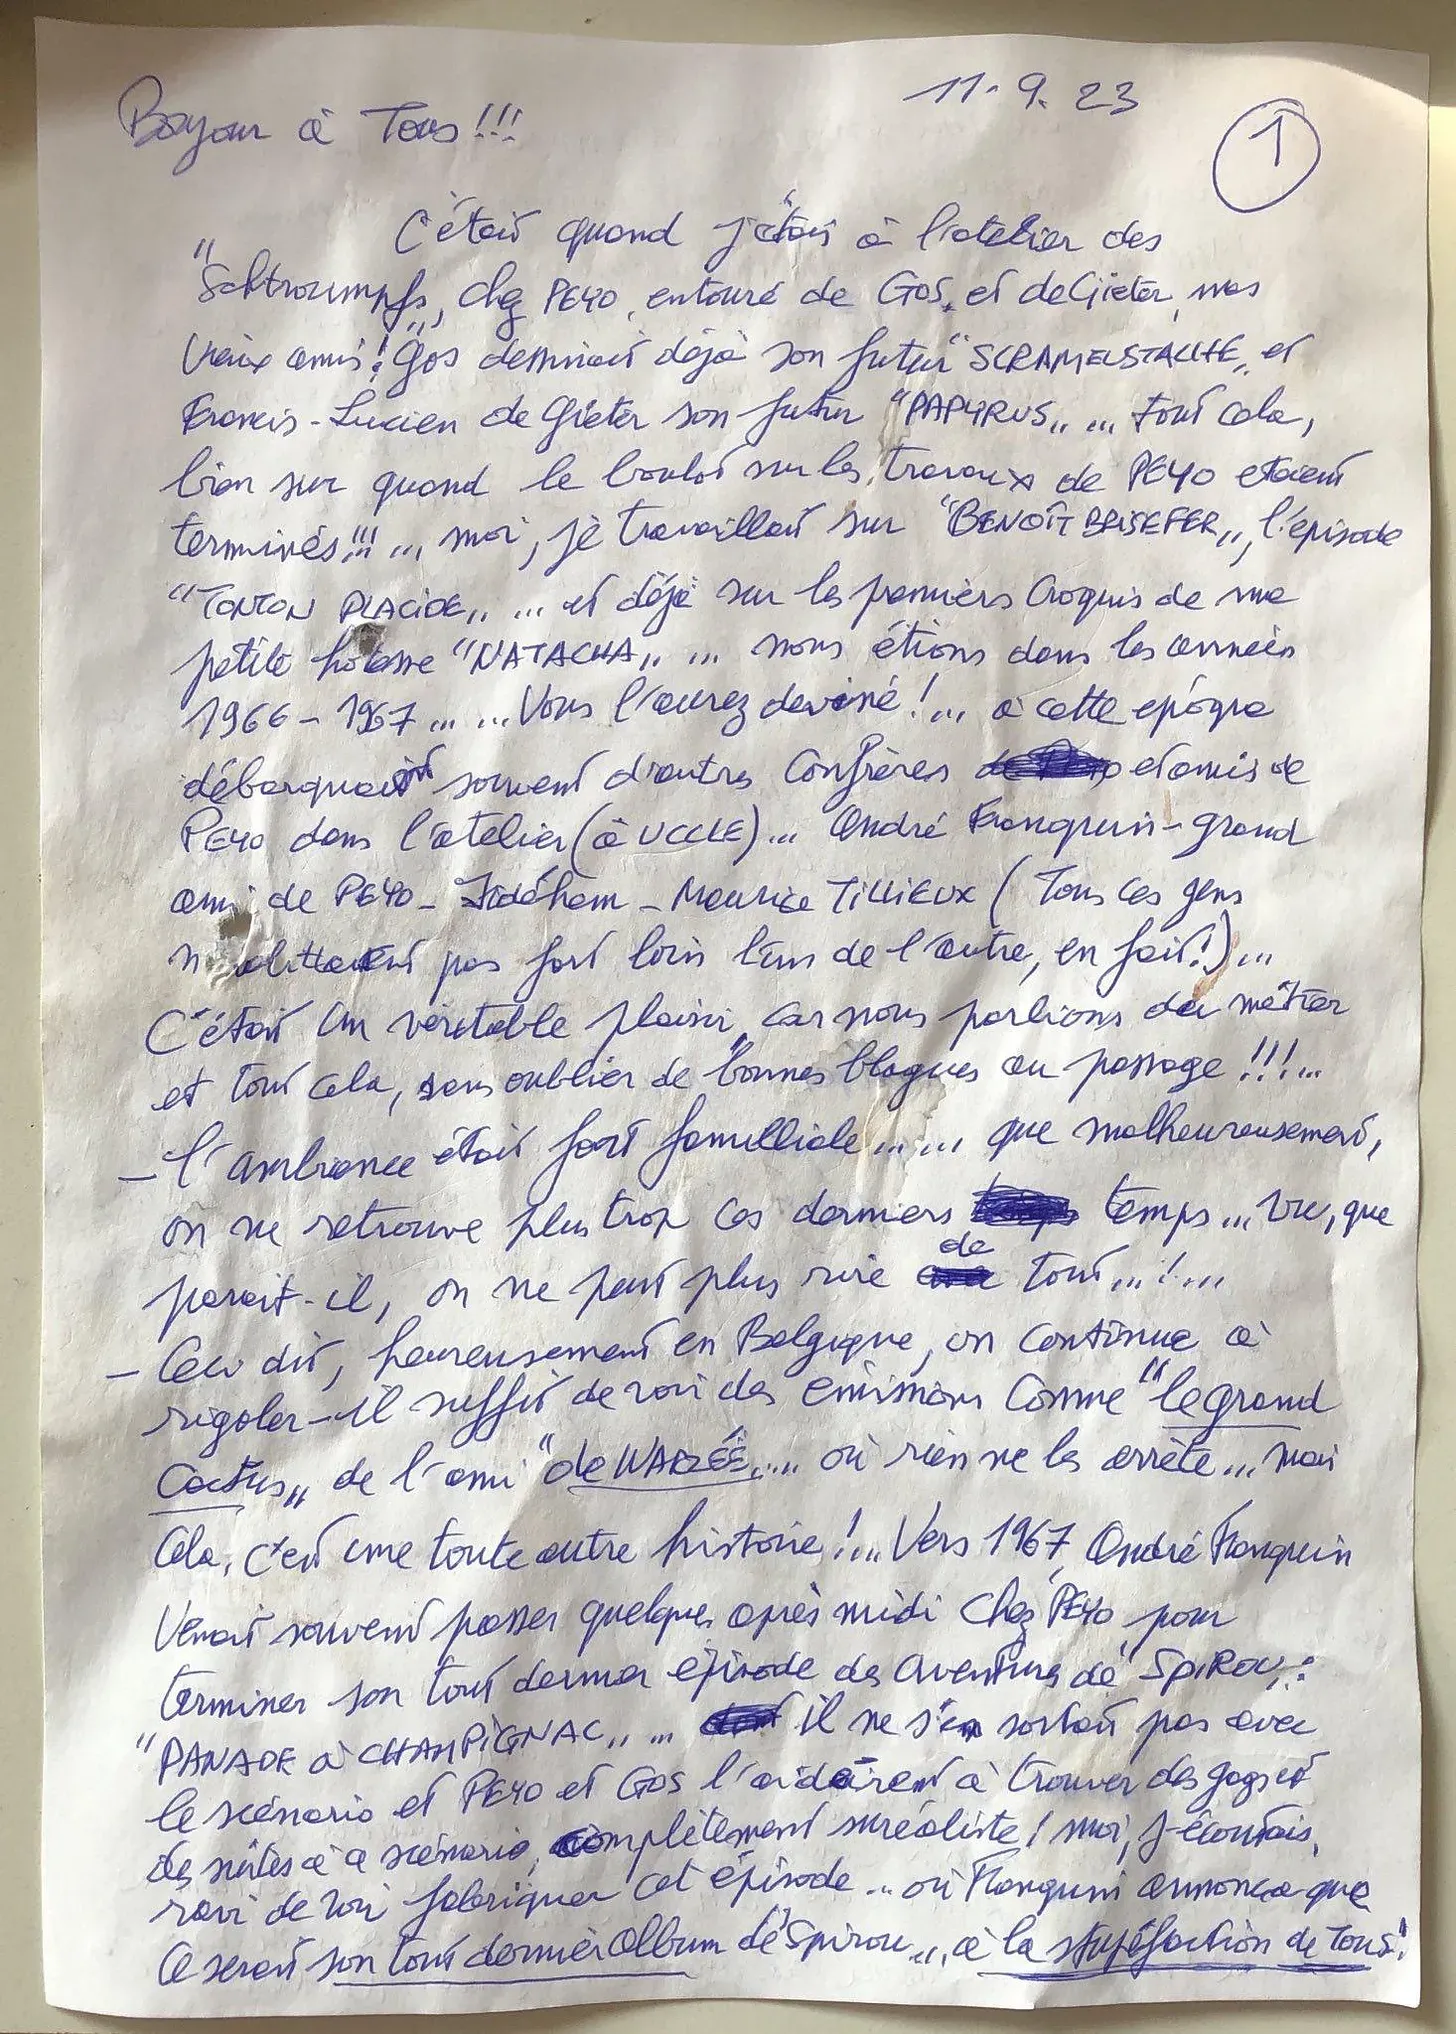 11.9.23
Bonjour à Tous !!!
1
C'était quand j'étais à l'atelier des
"Schtroumpfs,, chez PEYO, entouré de GOS, et de Gieter, nos
vieux amis! Gos dessinait déjà son futur "SCRAMEUSTACHE,, et
Francis-Lucien de Gieter son futur "PAPYRUS,, ... tout cela,
bien sur quand le boulot sur les travaux de PEYO etaient
terminés!!! ... moi, je travaillait sur "BENOÎT BRISEFER,,, l'épisode
"TONTON PLACIDE,, ... et déjà sur les premiers croquis de ma
petite hotesse "NATACHA,, ... nous étions dans les années
1966-1967 ... ... Vous l'aurez deviné! ... à cette epóque
débarquaient souvent d'autres confrères et amis de
PEYO dans l'atelier (à UCCLE) ... André Franquin - grand
ami de PEYO - Jidéhem - Maurice TILLIEUX (Tous ces gens
n'habittaient pas fort loin l'un de l'autre, en fait!) ...
C'était un véritable plaisir, car nous parlions du métier
et tout cela, sans oublier de bonnes blagues au passage !!! ...
- l'ambiance était fort familliale ... ... que malheureusement,
on ne retrouve plus trop ces derniers temps ... vu, que
parait-il, on ne peut plus rire de tout ... ! ...
- Ceci dit, heureusement en Belgique, on continue à
rigoler - il suffit de voir des émissions comme "le grand
Cactus,, de l'ami "de WARZÉE,, ... où rien ne les arrête ... mais
Cela, c'est une toute autre histoire! ... Vers 1967, André Franquin
Venait souvent passer quelques après midi chez PEYO pour
terminer son tout dernier épisode des aventures de "SPIROU,, :
"PANADE à CHAMPIGNAC,, ... il ne s'en sortait pas avec
le scénario et PEYO et GOS l'aidèrent à trouver des gags et
des suites à ce scénario, complètement suréaliste! moi, j'écoutais,
ravi de voir fabriquer cet épisode ... où Franquin annonca que
Ce serait son tout dernier album de "Spirou,, , à la stupéfaction de tous!